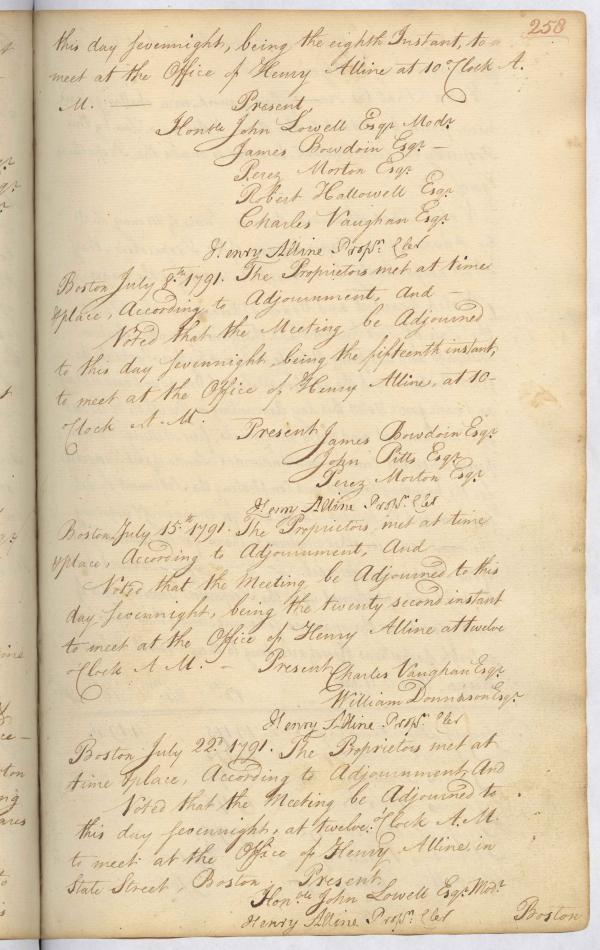 258
this day sevennight, being the eighth Instant, to
meet at the Office of Henry Alline at 10 oClock A.
M. — Present
Honble John Lowell Esqr Modr
James Bowdoin Esqr —
Perez Morton Esqr
Robert Hallowell Esqr
Charles Vaughan Esqr
Henry Alline Propr. Cler
Boston July 8th 1791. The Proprietors met at time
& place, According to Adjournment, and —
Voted that the Meeting be Adjourned
to this day sevennight, being the fifteenth instant,
to meet at the Office of Henry Alline, at 10 -
oClock A. M.
Present James Bowdoin Esqr
John Pitts Esqr
Perez Morton Esqr
Henry Alline Propr. Cler
Boston July 15th 1791. The Proprietors, met at time
& place, According to Adjournment, And
Voted that the Meeting, be Adjourned to this
day sevennight, being the twenty second instant
to meet at the Office of Henry Alline at twelve
oClock A M. — Present Charles Vaughan Esqr
William Donnison Esqr.
Henry Alline Propr. Cler
Boston July 22d. 1791. The Proprietors met at
time & place, According to Adjournment, And
Voted that the Meeting be Adjourned to
this day sevennight, at twelve oClock A.M.
to meet at the Office of Henry Alline in
State Street, Boston. Present
Honble John Lowell Esqr. Modr
Henry Alline Propr. Cler
Boston